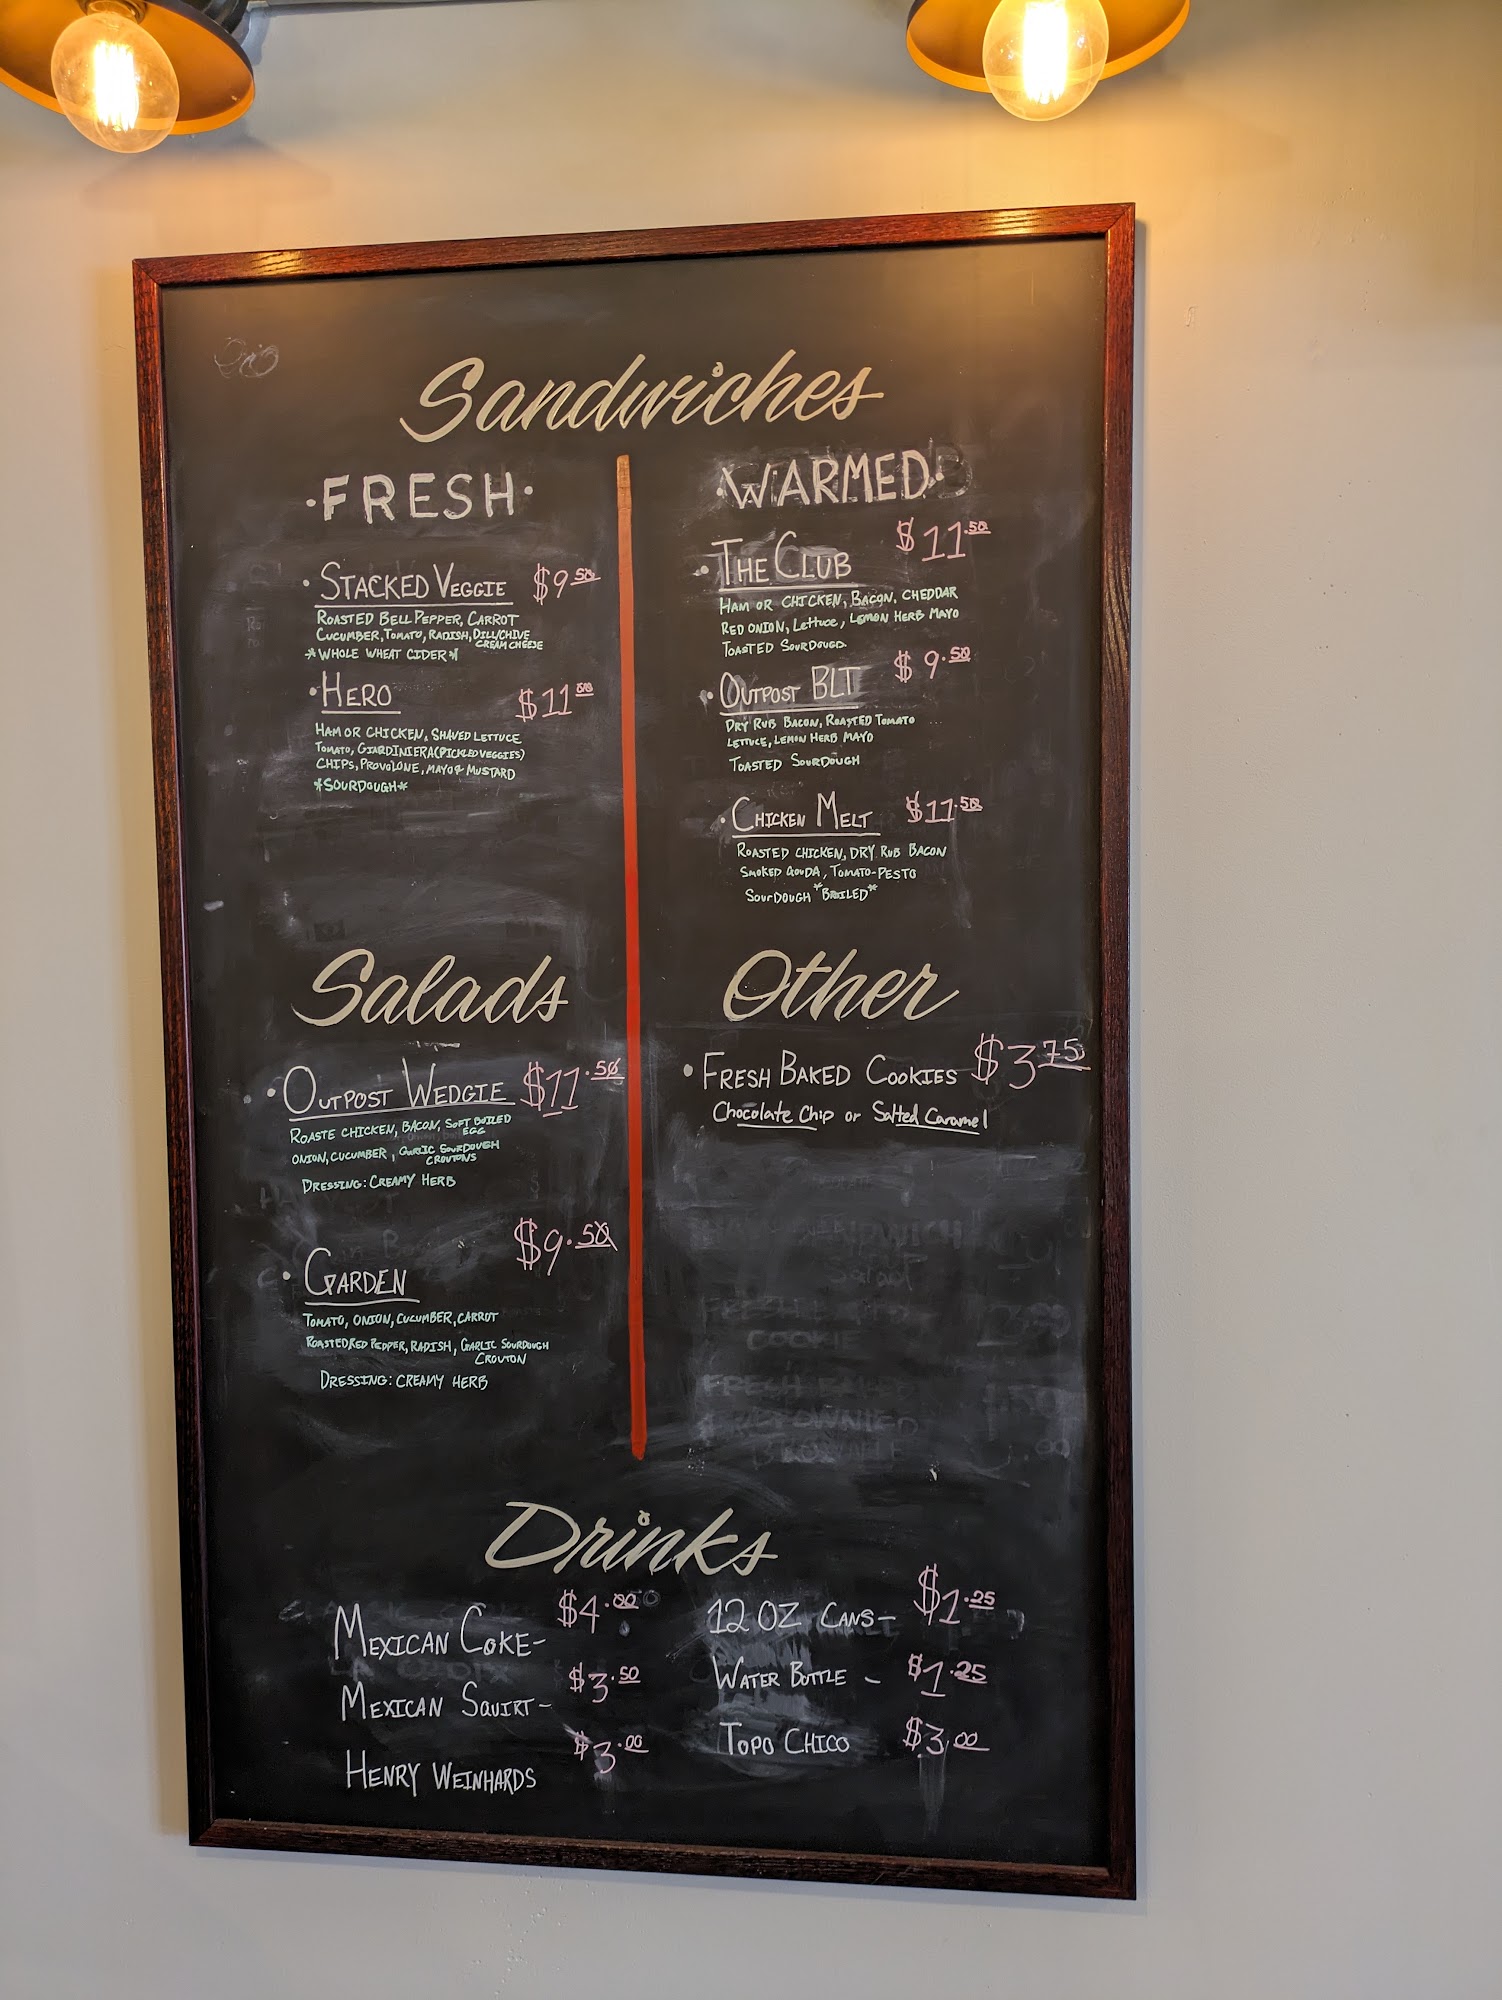 Sandwiches
·FRESH·
·STACKED VEGGIE $9.50
ROASTED BELL PEPPER, CARROT
CUCUMBER, TOMATO, RADISH, DILL/CHIVE
CREAM CHEESE
*WHOLE WHEAT CIDER*
·HERO $11.00
HAM OR CHICKEN, SHAVED LETTUCE
TOMATO, GIARDINIERA (PICKLED VEGGIES)
CHIPS, PROVOLONE, MAYO & MUSTARD
*SOURDOUGH*
·WARMED·
·THE CLUB $11.50
HAM OR CHICKEN, BACON, CHEDDAR
RED ONION, Lettuce, LEMON HERB MAYO
TOASTED SOURDOUGH
·OUTPOST BLT $9.50
DRY RUB BACON, ROASTED TOMATO
LETTUCE, LEMON HERB MAYO
TOASTED SOURDOUGH
·CHICKEN MELT $11.50
ROASTED CHICKEN, DRY RUB BACON
SMOKED GOUDA, TOMATO-PESTO
SOURDOUGH *BROILED*
Salads
·OUTPOST WEDGIE $11.50
ROASTE CHICKEN, BACON, SOFT BOILED
EGG
ONION, CUCUMBER, GARLIC SOURDOUGH
CROUTONS
DRESSING: CREAMY HERB
·GARDEN $9.50
TOMATO, ONION, CUCUMBER, CARROT
ROASTED RED PEPPER, RADISH, GARLIC SOURDOUGH
CROUTON
DRESSING: CREAMY HERB
Other
·FRESH BAKED COOKIES $3.75
Chocolate Chip or Salted Caramel
Drinks
MEXICAN COKE- $4.00
MEXICAN SQUIRT- $3.50
HENRY WEINHARDS $3.00
12 OZ CANS- $1.25
WATER BOTTLE - $1.25
TOPO CHICO $3.00